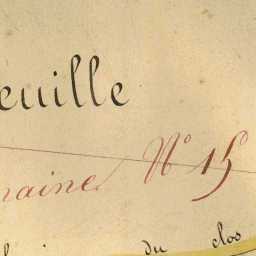 euille
maine N° 15
du clos